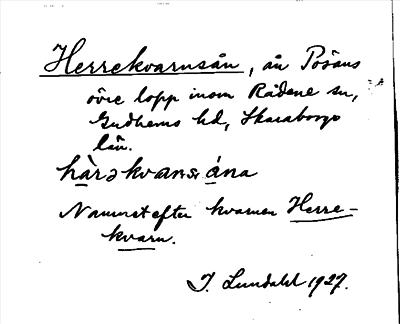 Herrekvarnsån, ån Pösans
övre lopp inom Rådene sn,
Gudhems hd, Skaraborgs
län.
hàrəkvan&ána
Namnet efter kvarnen Herre-
kvarn.
I. Lundahl 1927.